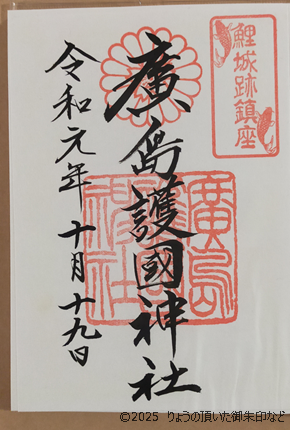 鯉城跡鎮座
廣島護國神社
廣島護國神社
令和元年十月十九日
©2025 りょうの頂いた御朱印など